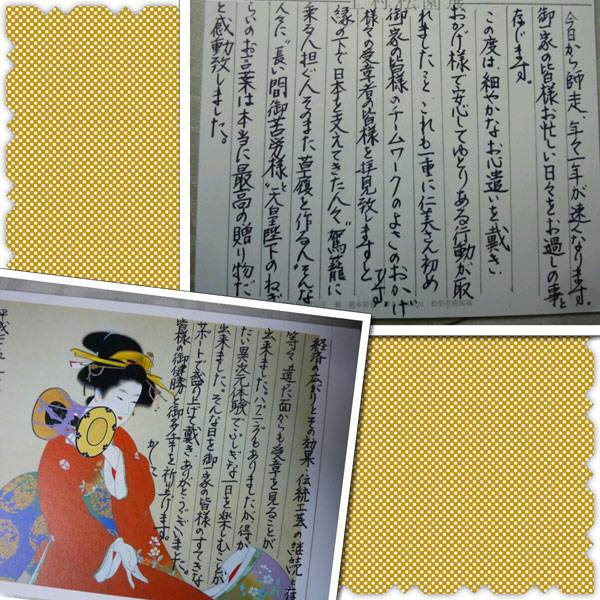 今日から師走、年々一年が速くなります。
御一家の皆様お忙しい日々をお過しの事と
存じます。
この度は、細やかなお心遣いを戴き、
おかげ様で安心してゆとりある行動が取
れましたこと、これも一重に仁美さん初め
御一家の皆様のチームワークのよさのおかげです。
様々の受章者の皆様を拝見致しますと
縁の下で日本を支えてきた人々、"駕籠に
乗る人担ぐ人そのまた草履を作る人"そんな
人々に、"長い間御苦労様"と天皇陛下のねぎ
らいのお言葉は本当に最高の贈り物だ
と感動致しました。
経済の広がりとその効果、伝統工芸の継続と
等々、違った面からも受章を見ることが
出来ました。ハプニングもありましたが得が
たい異次元体験でふしぎな一日を楽しむことが
出来ました。そんな日を御一家の皆様のすてきな
サポートで盛り上げて戴きありがとうございました。
皆様の御健勝と御多幸を祈り上げます。
かしこ
平成二十五